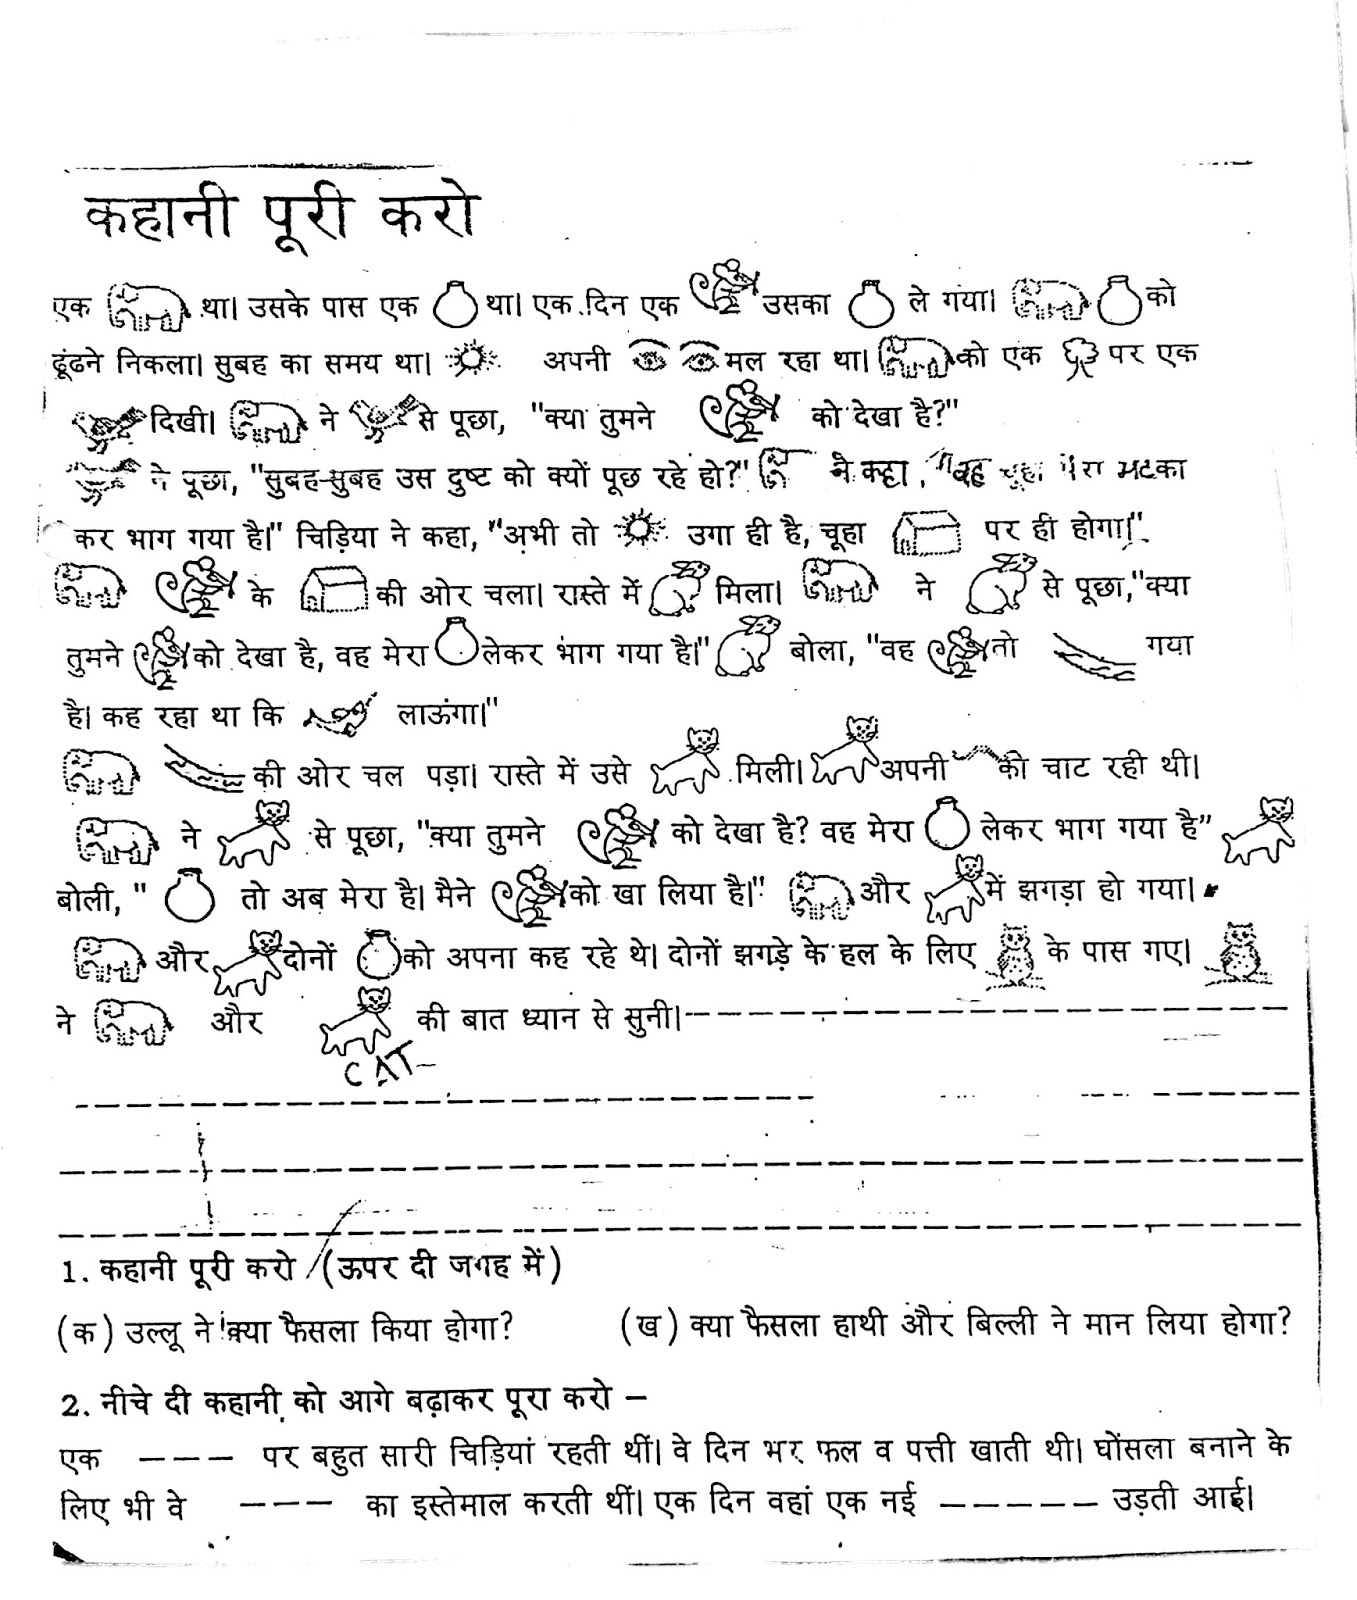 कहानी पूरी करो
एक था। उसके पास एक था। एक दिन एक उसका ले गया। को
ढूंढने निकला। सुबह का समय था। अपनी मल रहा था। को एक पर एक
दिखी। ने से पूछा, "क्या तुमने को देखा है?"
ने पूछा, "सुबह-सुबह उस दुष्ट को क्यों पूछ रहे हो?" ने कहा, "वह चूहा मेरा मटका
कर भाग गया है।" चिड़िया ने कहा, "अभी तो उगा ही है, चूहा पर ही होगा।"
के की ओर चला। रास्ते में मिला। ने से पूछा,"क्या
तुमने को देखा है, वह मेरा लेकर भाग गया है।" बोला, "वह तो गया
है। कह रहा था कि लाऊंगा।"
की ओर चल पड़ा। रास्ते में उसे मिली। अपनी को चाट रही थी।
ने से पूछा, "क्या तुमने को देखा है? वह मेरा लेकर भाग गया है"
बोली, " तो अब मेरा है। मैने को खा लिया है।" और में झगड़ा हो गया।
और दोनों को अपना कह रहे थे। दोनों झगड़े के हल के लिए के पास गए।
ने और की बात ध्यान से सुनी।
CAT
1. कहानी पूरी करो (ऊपर दी जगह में)
(क) उल्लू ने क्या फैसला किया होगा? (ख) क्या फैसला हाथी और बिल्ली ने मान लिया होगा?
2. नीचे दी कहानी को आगे बढ़ाकर पूरा करो –
एक --- पर बहुत सारी चिड़ियां रहती थीं। वे दिन भर फल व पत्ती खाती थी। घोंसला बनाने के
लिए भी वे --- का इस्तेमाल करती थीं। एक दिन वहां एक नई ----- उड़ती आई।